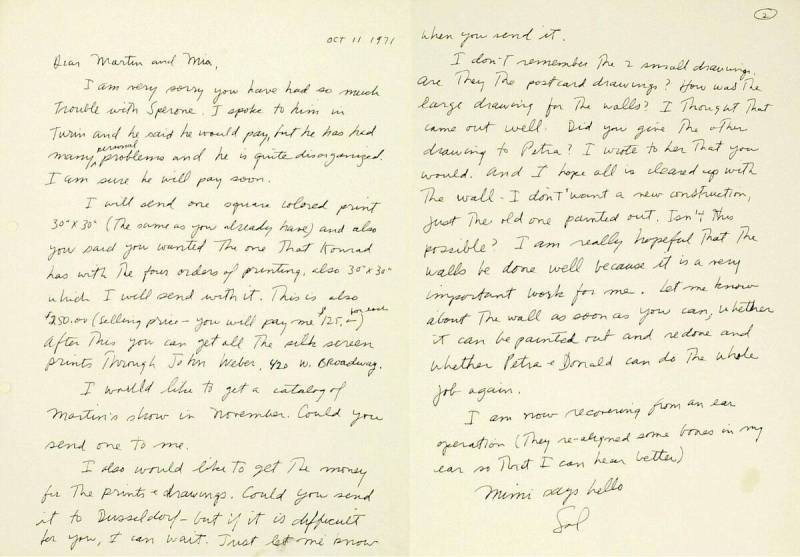 OCT 11 1971
Dear Martin and Mia,
I am very sorry you have had so much
trouble with Sperone. I spoke to him in
Turin and he said he would pay, but he has had
many personal problems and he is quite disorganized.
I am sure he will pay soon.
I will send one square colored print
30"x30" (the same as you already have) and also
you said you wanted the one that Konrad
has with the four orders of printing, also 30"x30"
which I will send with it. This is also
$250.00 (selling price – you will pay me $125.– for each)
After this you can get all the silk screen
prints through John Weber, 420 W. Broadway.
I would like to get a catalog of
Martin's show in November. Could you
send one to me.
I also would like to get the money
for the prints + drawings. Could you send
it to Dusseldorf – but if it is difficult
for you, I can wait. Just let me know
2
when you send it.
I don't remember the 2 small drawings.
Are they the postcard drawings? How was the
large drawing for the walls? I thought that
came out well. Did you give the other
drawing to Petra? I wrote to her that you
would. And I hope all is cleared up with
the wall – I don't want a new construction,
just the old one painted out. Isn't this
possible? I am really hopeful that the
walls be done well because it is a very
important work for me. Let me know
about the wall as soon as you can, whether
it can be painted out and redone and
whether Petra + Donald can do the whole
job again.
I am now recovering from an ear
operation (they re-aligned some bones in my
ear so that I can hear better)
Mimi says hello
Sol